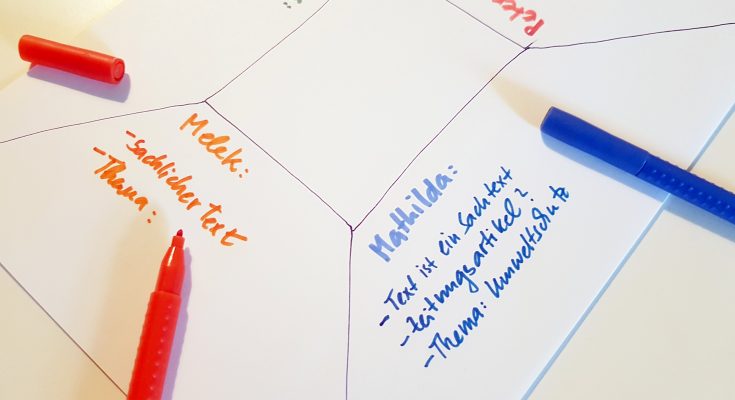 Peter
Melek:
- sachlicher Text
- Thema:
Mathilda:
- Text ist ein Sachtext
- Zeitungsartikel?
- Thema: Umweltschutz